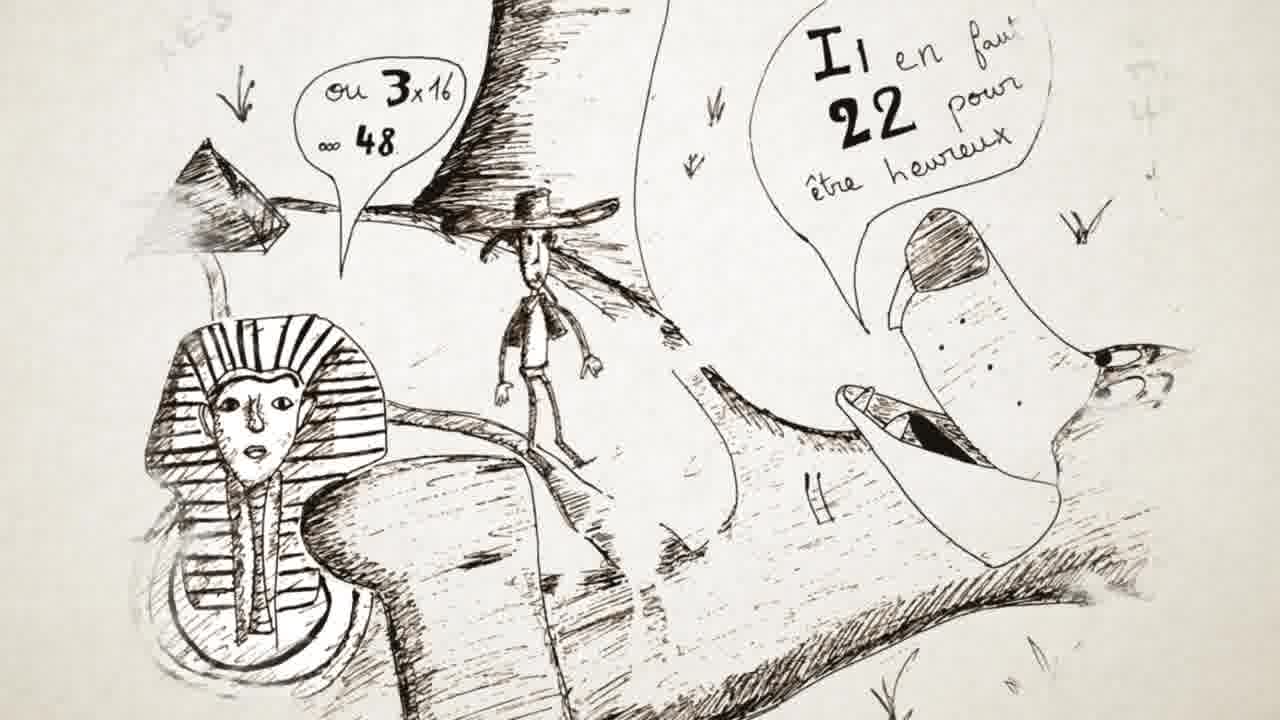 ou 3x16
... 48.
Il en faut
22 pour
être heureux